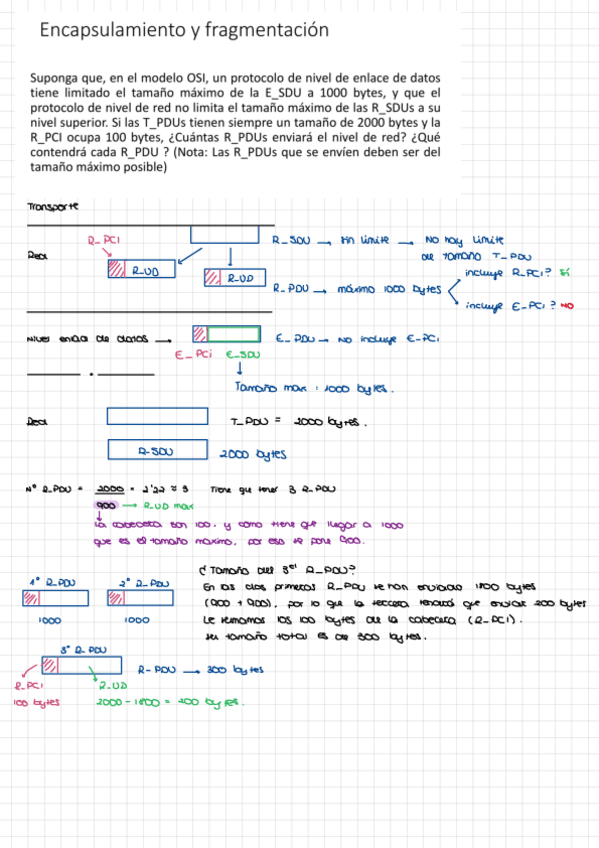 Encapsulamiento y fragmentación
Suponga que, en el modelo OSI, un protocolo de nivel de enlace de datos
tiene limitado el tamaño máximo de la E_SDU a 1000 bytes, y que el
protocolo de nivel de red no limita el tamaño máximo de las R_SDUs a su
nivel superior. Si las T_PDUs tienen siempre un tamaño de 2000 bytes y la
R_PCI ocupa 100 bytes, ¿Cuántas R_PDUs enviará el nivel de red? ¿Qué
contendrá cada R_PDU ? (Nota: Las R_PDUs que se envíen deben ser del
tamaño máximo posible)
Transporte
R_PCI
R_SDU → sin límite → No hay límite
de tamaño T_PDU
Red
R_UD
R_UD
incluye R_PCi? Sí
R_PDU → máximo 1000 bytes
incluye E-PCi? NO
Nivel enlace de datos →
E_PDU → NO incluye E-PCi
E_PCi E_SDU
Tamaño max : 1000 bytes.
Red
T_PDU = 2000 bytes.
R-SDU
2000 bytes
Nº R_PDU = 2000 = 2'22 ≈ 3 Tiene que tener 3 R_PDU
900 → R_UD max
La cabecera son 100, y como tiene que llegar a 1000
que es el tamaño máximo, por eso se pone 900.
¿Tamaño del 3er R_PDU?
1º R_PDU 2º R_PDU
En las dos primeras R_PDU se han enviado 1800 bytes
(900 + 900), por lo que la tercera tendrá que enviar 200 bytes
1000 1000
Le sumamos los 100 bytes de la cabecera (R_PCI).
su tamaño total es de 300 bytes.
3º R_PDU
R-PDU → 300 bytes
R_PCI R_UD
100 bytes 2000 - 1800 = 200 bytes.